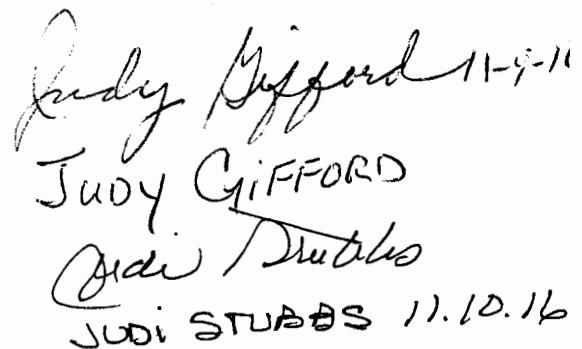 Judy Gifford 11-9-16
JUDY GIFFORD
Judi Stubbs
JUDI STUBBS 11.10.16